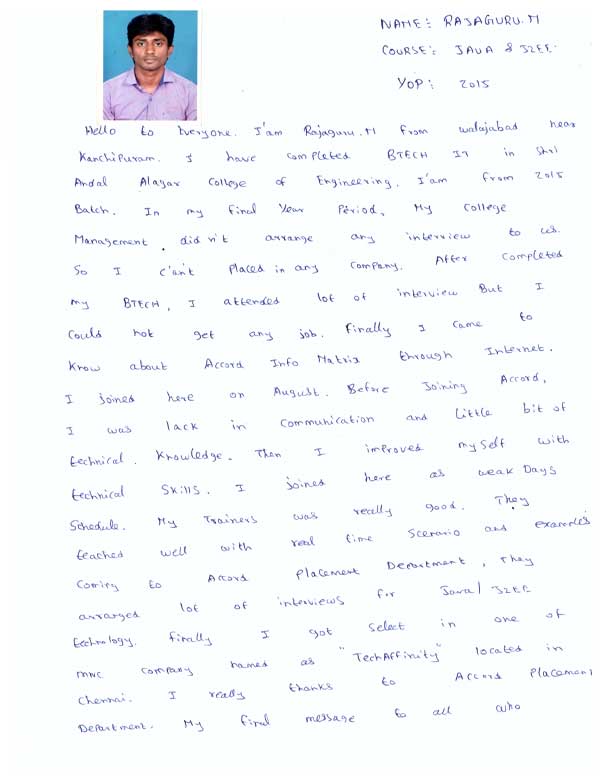 NAME: RAJAGURU.M
COURSE: JAVA & J2EE.
YOP: 2015
Hello to Everyone. I'am Rajaguru.M from walajabad near
Kanchipuram. I have completed BTECH IT in Shri
Andal Alagar College of Engineering. I'am from 2015
Batch. In my final Year Period, My College
Management didn't arrange any interview to us.
So I c'an't Placed in any Company. After Completed
my BTECH, I attended lot of interview But I
Could not get any job. Finally I came to
Know about Accord Info Matrix through Internet.
I joined here on August. Before Joining Accord,
I was lack in Communication and Little bit of
technical Knowledge. Then I improved myself with
technical Skills. I joined here as weak Days
Schedule. My Trainers was really good. They
teached well with real time Scenario and examples
Coming to Accord Placement Department, They
arranged lot of interviews for Java/J2EE
technology. Finally I got Select in one of
mnc Company named as "TechAffinity" located in
Chennai. I really thanks to Accord Placement
Department. My final message to all who